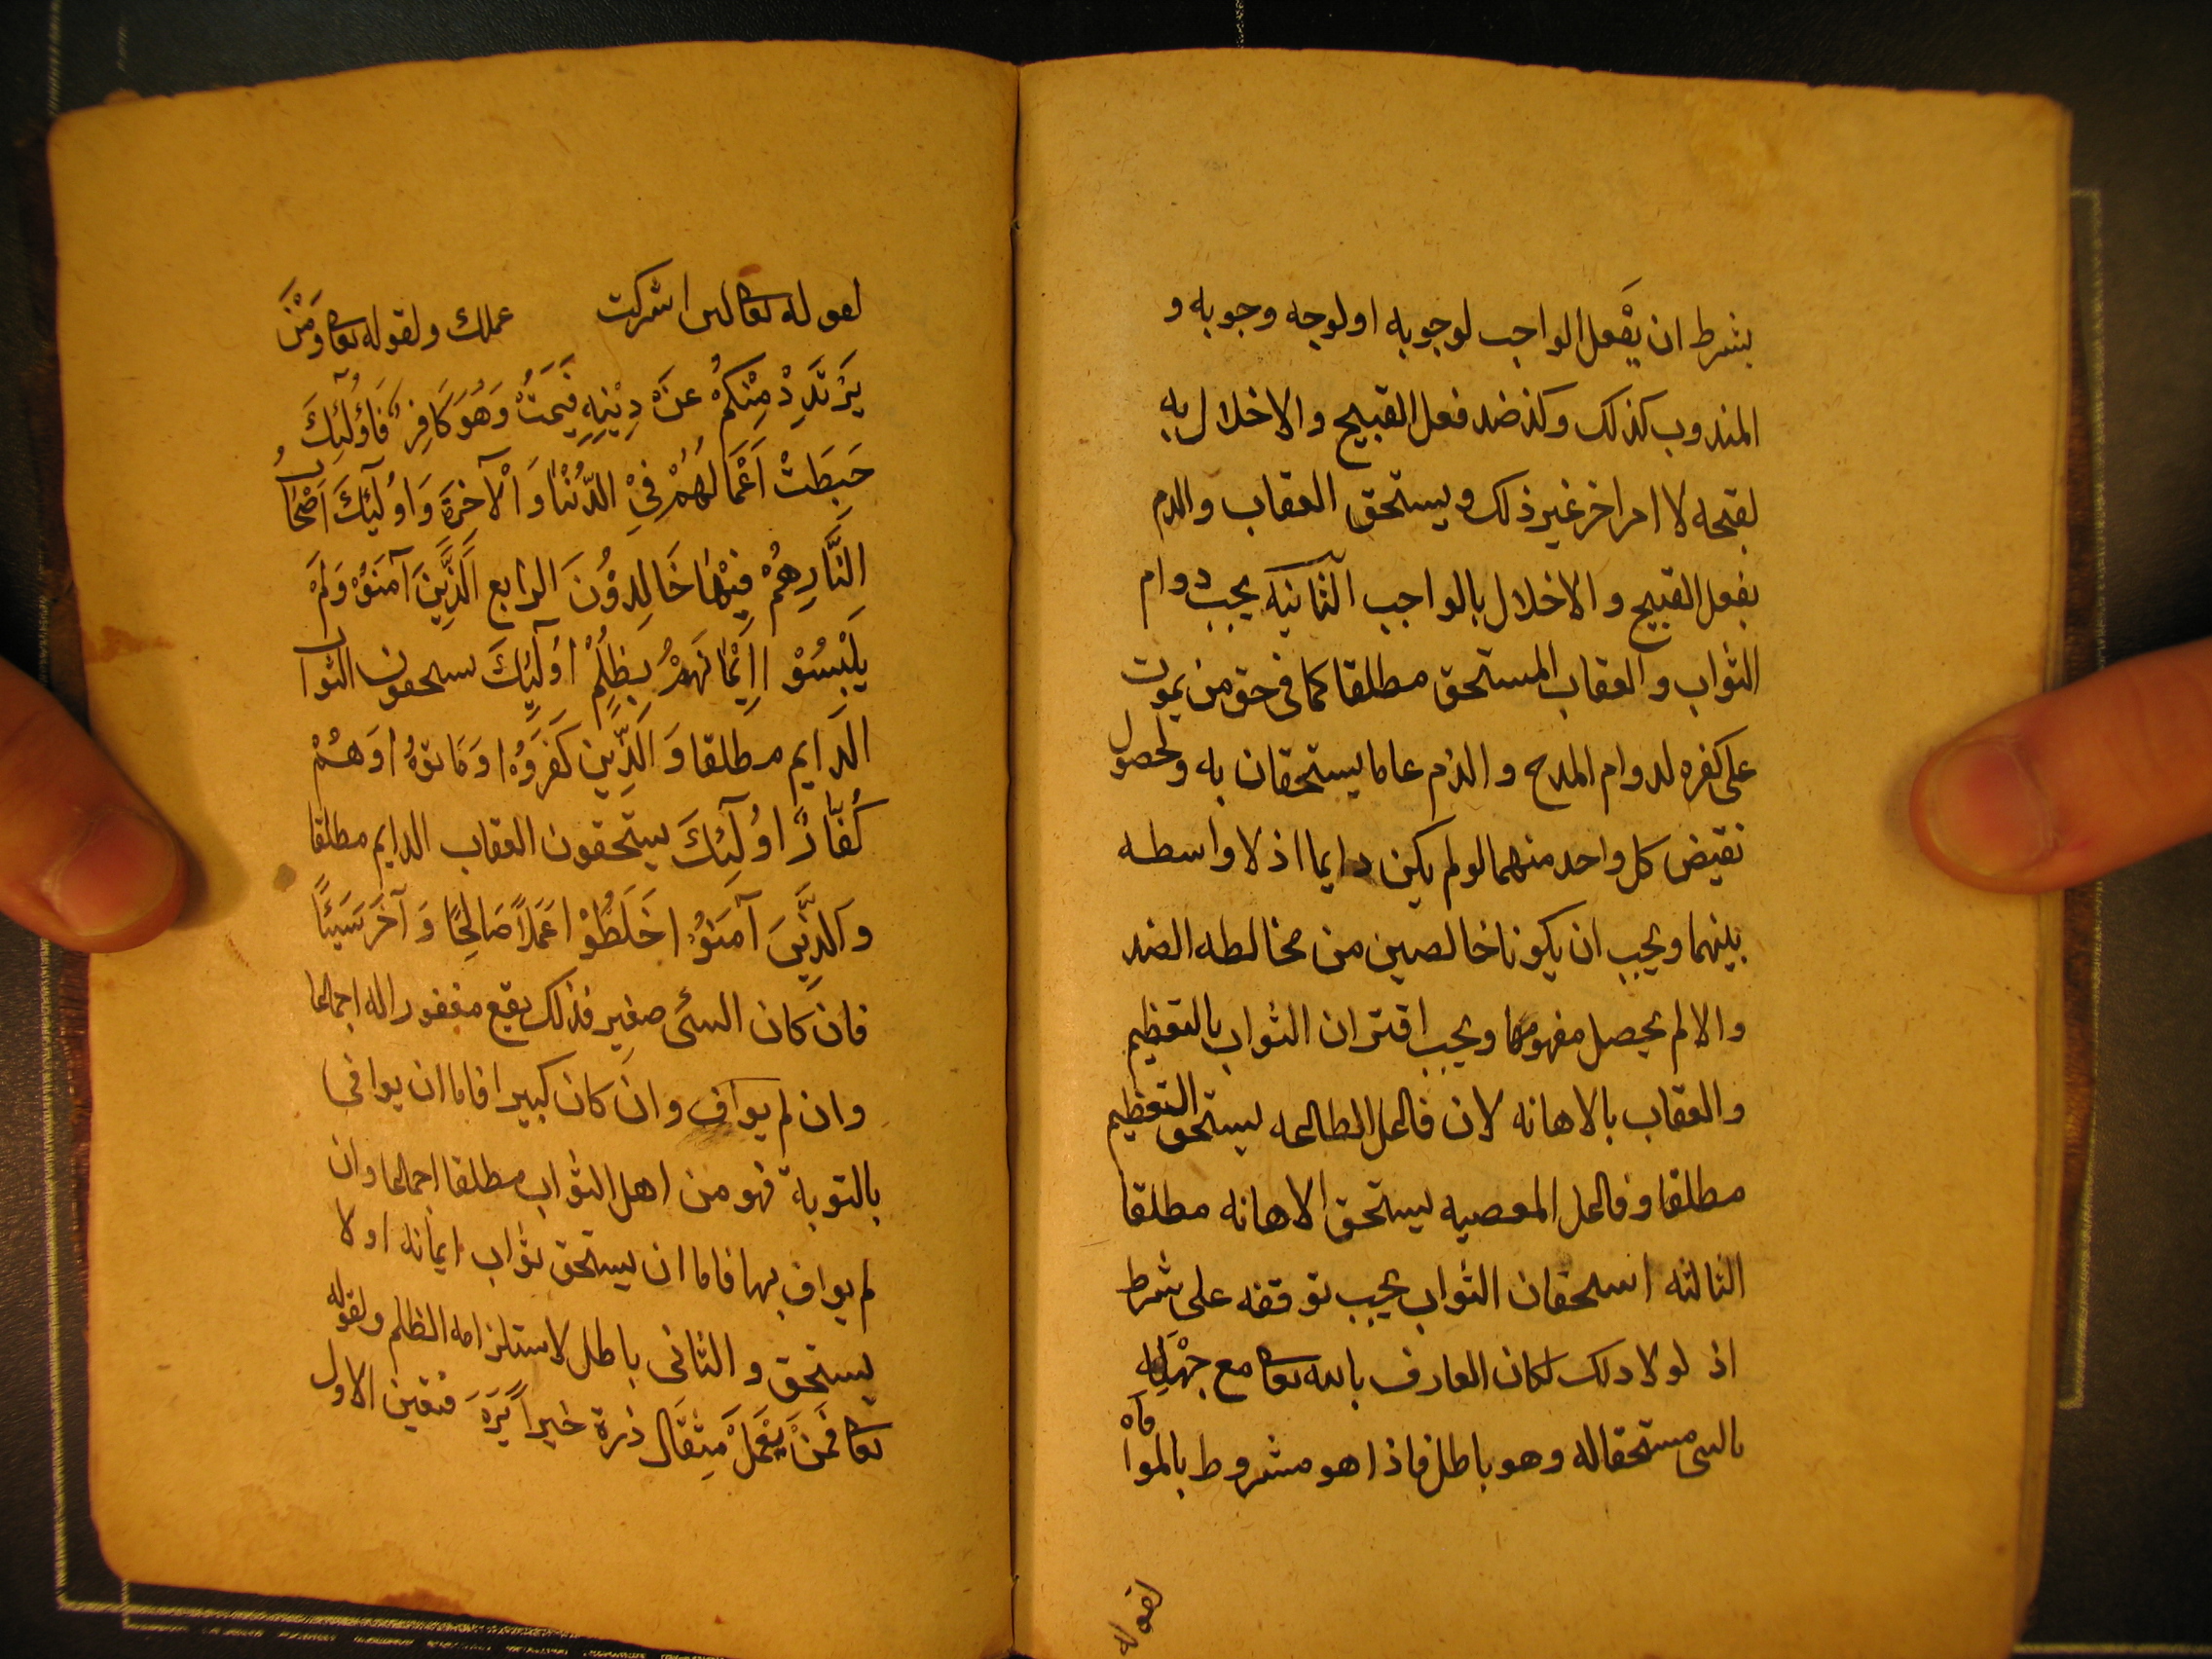 بشرط ان يفعل الواجب لوجوبه او لوجه وجوبه و
المندوب كذلك وكذ ضد فعل القبيح والاخلال به
لقبحه لا امر اخر غير ذلك ويستحق العقاب والذم
بفعل القبيح والاخلال بالواجب الثانيه يجب دوام
الثواب والعقاب المستحق مطلقا كما فى حق من يموت
على كفره لدوام المدح والذم عاما يستحقان به ولحصول
نقيض كل واحد منهما لو لم يكن دايما اذ لا واسطه
بينهما ويجب ان يكونا خالصين من مخالطه الضد
والا لم يحصل مفهومهما ويجب اقتران الثواب بالتعظيم
والعقاب بالاهانه لان فالعل الطالعه يستحق التعظيم
مطلقا وفالعل المعصيه يستحق الاهانه مطلقا
الثالثه استحقاق الثواب يجب توقفه على شرط
اذ لولا ذلك لكان العارف بالله تعا مع جهله
بالنبى مستحقا له وهو باطل فاذا هو مشروط بالموافاه
لقوله
لقوله تعا لئن اشركت عملك ولقوله تعا وَمَنْ
يَرْتَدِدْ مِنْكُمْ عَنْ دِيْنِهِ فَيَمُتْ وَهُوَ كَافِرٌ فَاُولٰٓئِكَ
حَبِطَتْ اَعْمَالُهُمْ فِيْ الدُّنْيٰا وَالْآخِرَةِ وَاُولٰٓئِكَ اَصْحٰابُ
النَّارِ هُمْ فِيْهٰا خَالِدُوْنَ الرابع اَلَّذِيْنَ آمَنُوْا وَلَمْ
يَلْبِسُوْا اِيْمَانَهُمْ بِظُلْمٍ اُولٰٓئِكَ يستحقون الثواب
الدايم مطلقا وَالَّذِيْنَ كَفَرُوْا وَمَاتُوْا وَهُمْ
كُفَّارٌ اُولٰٓئِكَ يستحقون العقاب الدايم مطلقا
وَالَّذِيْنَ آمَنُوْا خَلَطُوْا عَمَلاً صَالِحًا وَآخَرَ سَيِّئًا
فان كان السئ صغير فذلك يقع مغفورا له اجماعا
وان لم يواف وان كان كبيرا فاما ان يوافى
بالتوبة فهو من اهل الثواب مطلقا اجماعا وان
لم يواف بها فاما ان يستحق ثواب ايمانه او لا
يستحق والثانى باطل لاستلزامه الظلم ولقوله
تعا فَمَنْ يَعْمَلْ مِثْقَالَ ذرة خيراً يَرَه فتعين الاول